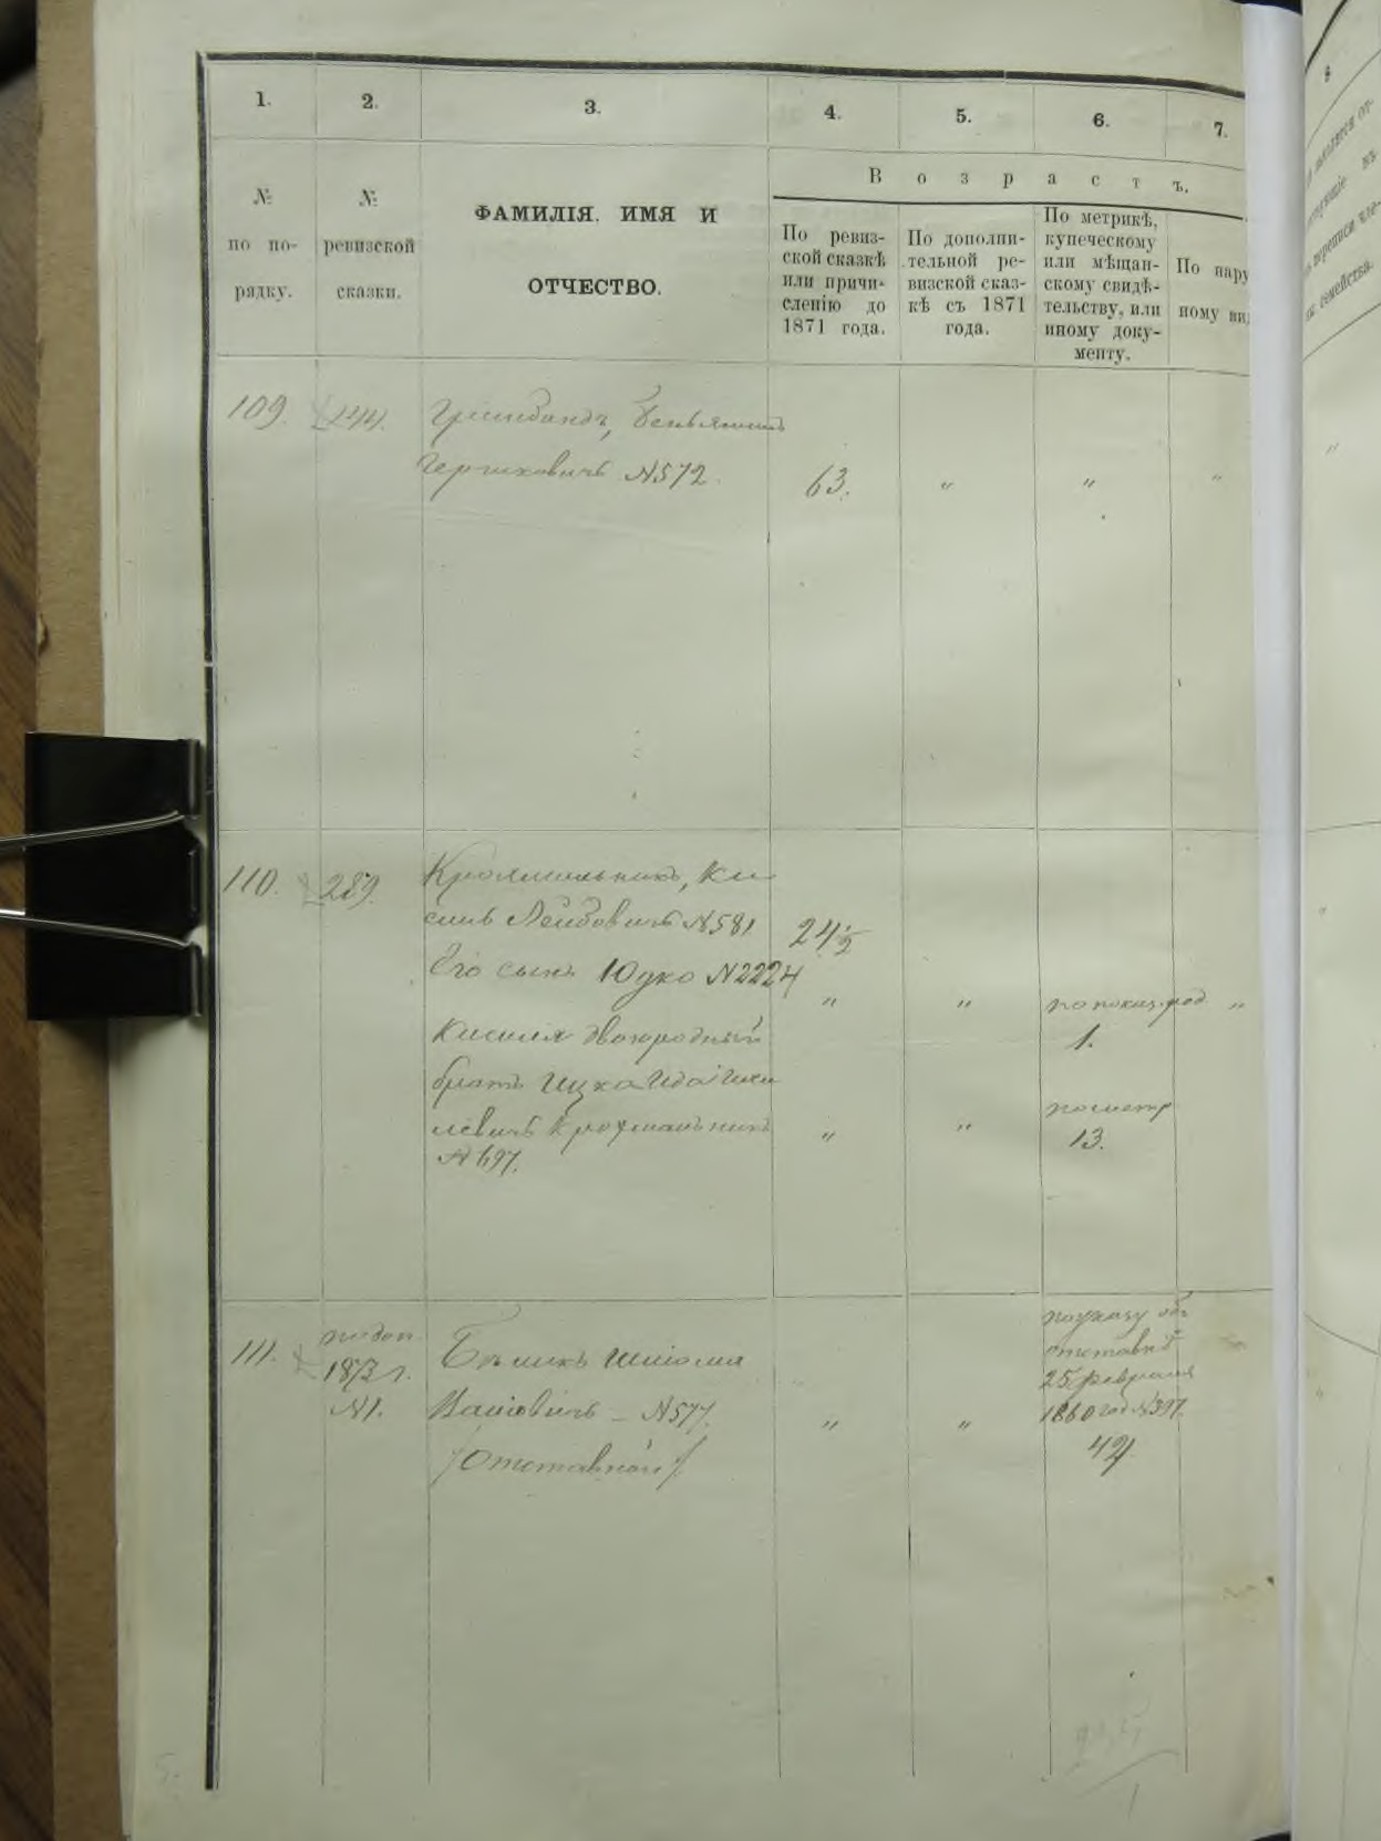 1.
2.
3.
4.
5.
6.
7.
В о з р а с т ъ.
№
по по-
рядку.
№
ревизской
сказки.
ФАМИЛІЯ, ИМЯ И
ОТЧЕСТВО.
По ревиз-
ской сказкѣ
или причи-
сленію до
1871 года.
По дополни-
тельной ре-
визской сказ-
кѣ съ 1871
года.
По метрикѣ,
купеческому
или мѣщан-
скому свидѣ-
тельству, или
иному доку-
менту.
По нару
ному ви
109.
244.
Гринбандъ, Беньяминъ
Гершковичъ №572.
63.
"
"
"
110.
289.
Крахмальникъ, Ки-
силь Лейбовичъ №581
24½
Его сынъ Юдко №2224
"
"
по показ. род
"
1.
Кисиля двоюродный
братъ Ицка
левичъ Крохмальникъ
№697.
"
"
по метр
13.
111.
по доп.
1873 г.
№1.
Бѣликъ Шліома
№577.
/Отставной/
"
"
по указу объ
отставкѣ
25 февраля
1860 год №397.
42